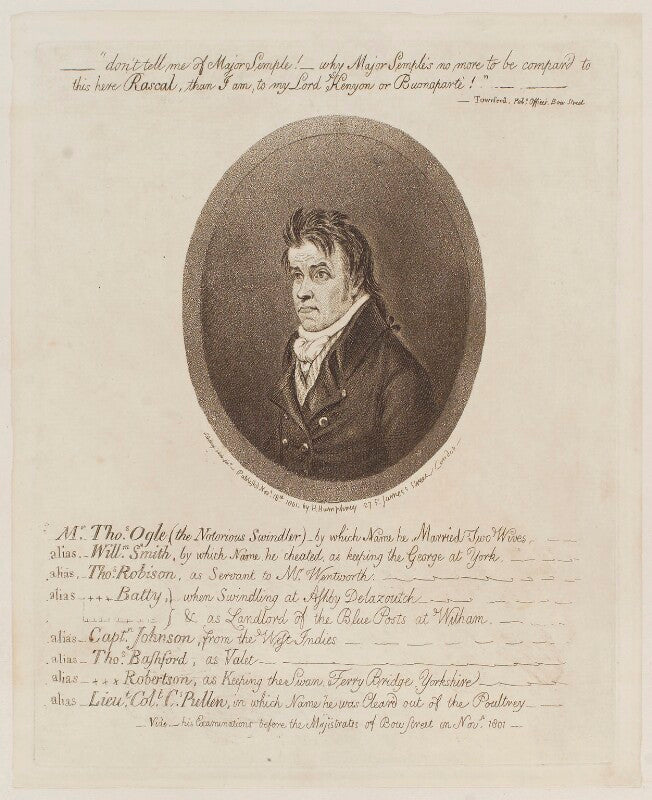 — "don't tell me of Major Semple! — why Major Semple's no more to be compar'd to
this here Rascal, than I am, to my Lord Kenyon or Buonaparte!" — —
— Townsend, Pubc Office, Bow Street
Publish'd Novr 18th 1801, by H. Humphrey 27 St James's Street London —
Mr Thos Ogle (the Notorious Swindler) — by which Name he Married Two Wives,
alias — Willm Smith, by which Name, he cheated, as keeping the George at York.
alias — Thos Robison, as Servant to Mr Wentworth.
alias — +++ Batty, } when Swindling at Ashby Delazouch
} & as Landlord of the Blue Posts at Witham.
alias — Capt Johnson, from the West Indies
alias — Thos Bashford, as Valet
alias — +++ Robertson, as Keeping the Swan Ferry Bridge Yorkshire
alias — Lieut Colt C. Pullen, in which Name he was Clear'd out of the Poultrey
— Vide — his Examinations before the Majistrates of Bow Street in Novr 1801 —